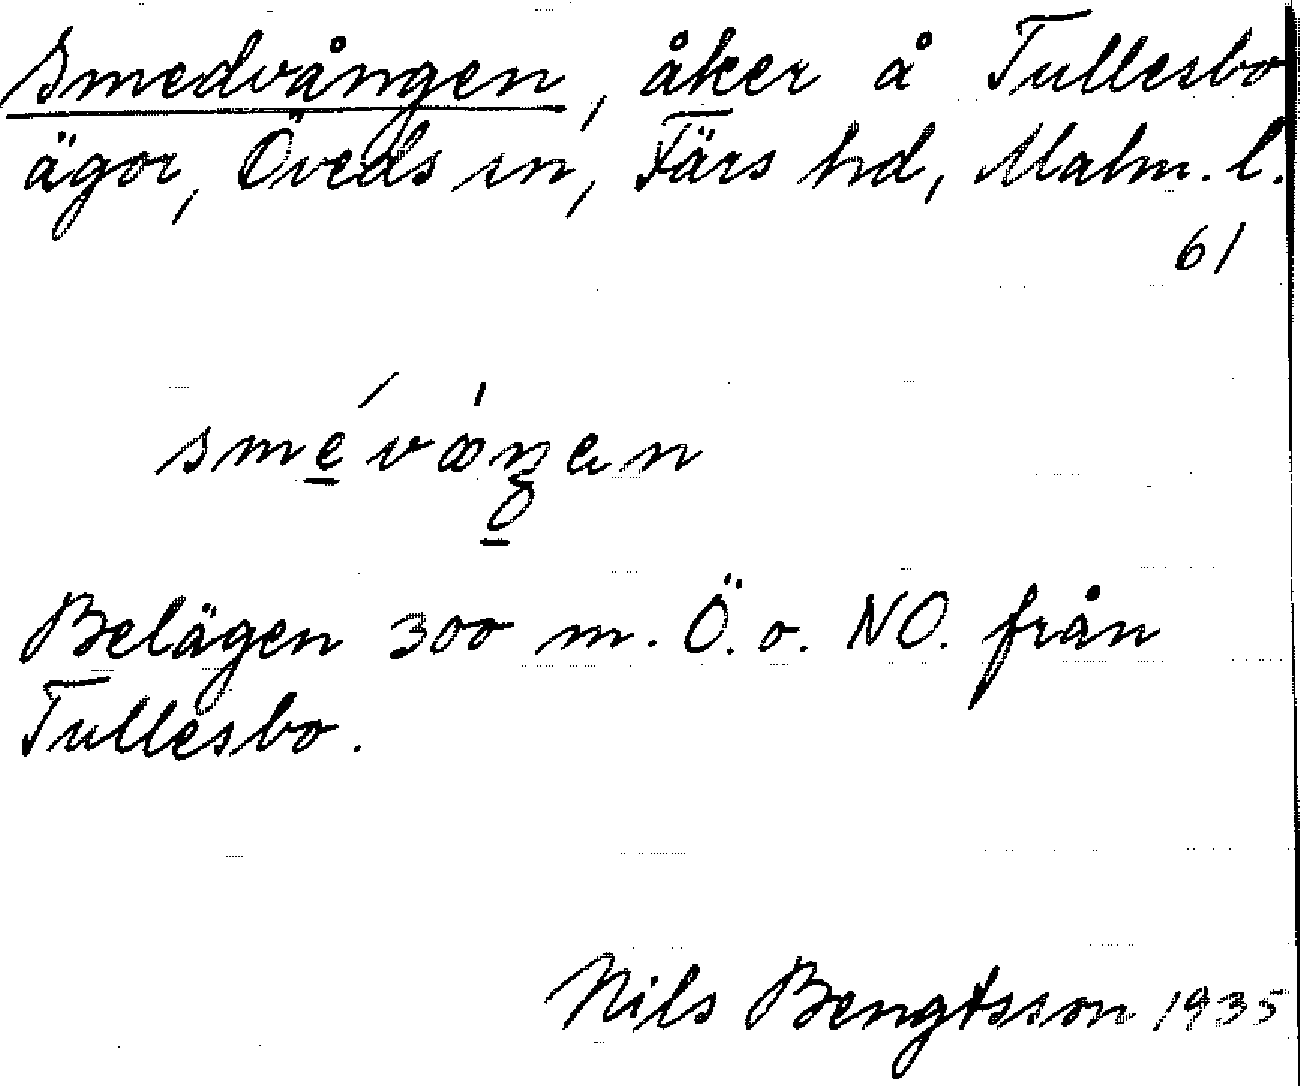 Smedvången, åker å Tullesbo
ägor, Öveds sn, Färs hd, Malm. l.
61
Belägen 300 m. Ö. o. NO. från
Tullesbo.
Nils Bengtsson 1935